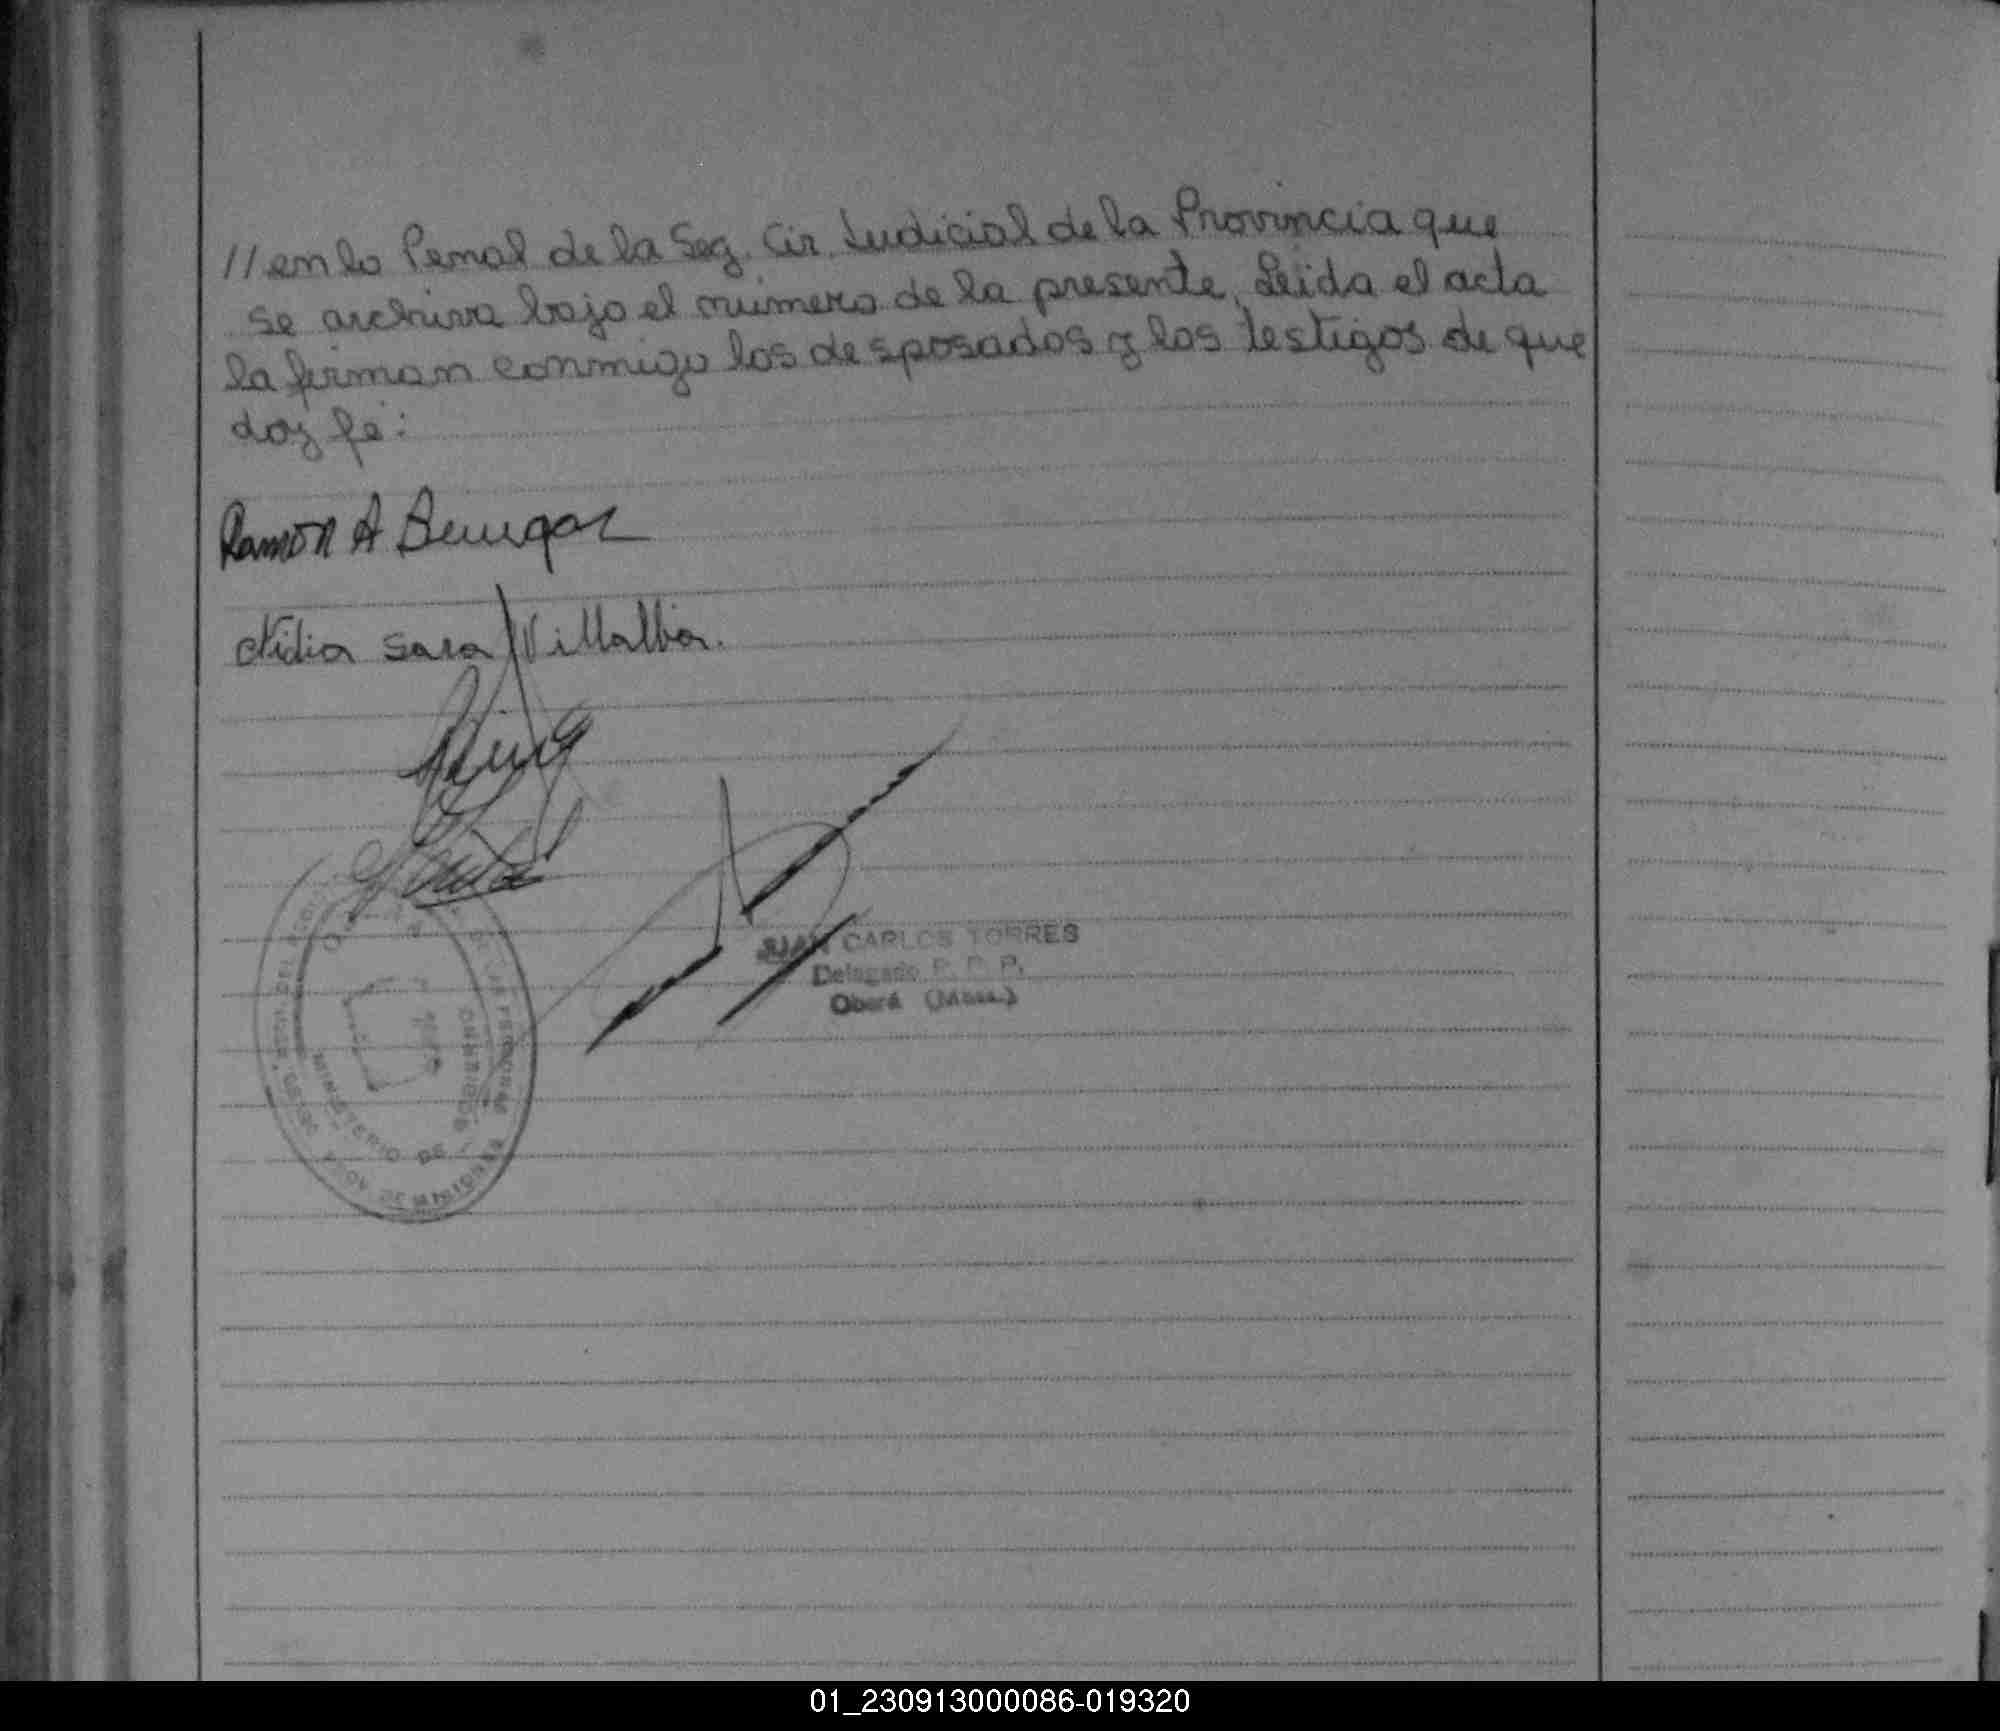 // en lo Penal de la Seg. Cir. Judicial de la Provincia que
se archiva bajo el número de la presente. Leída el acta
la firman conmigo los desposados y los testigos de que
doy fé:
Ramón A
Nidia Sara Villalba.
JUAN CARLOS TORRES
Delegado R. P. P.
Oberá (Mnes.)
MINISTERIO DE
01_230913000086-019320